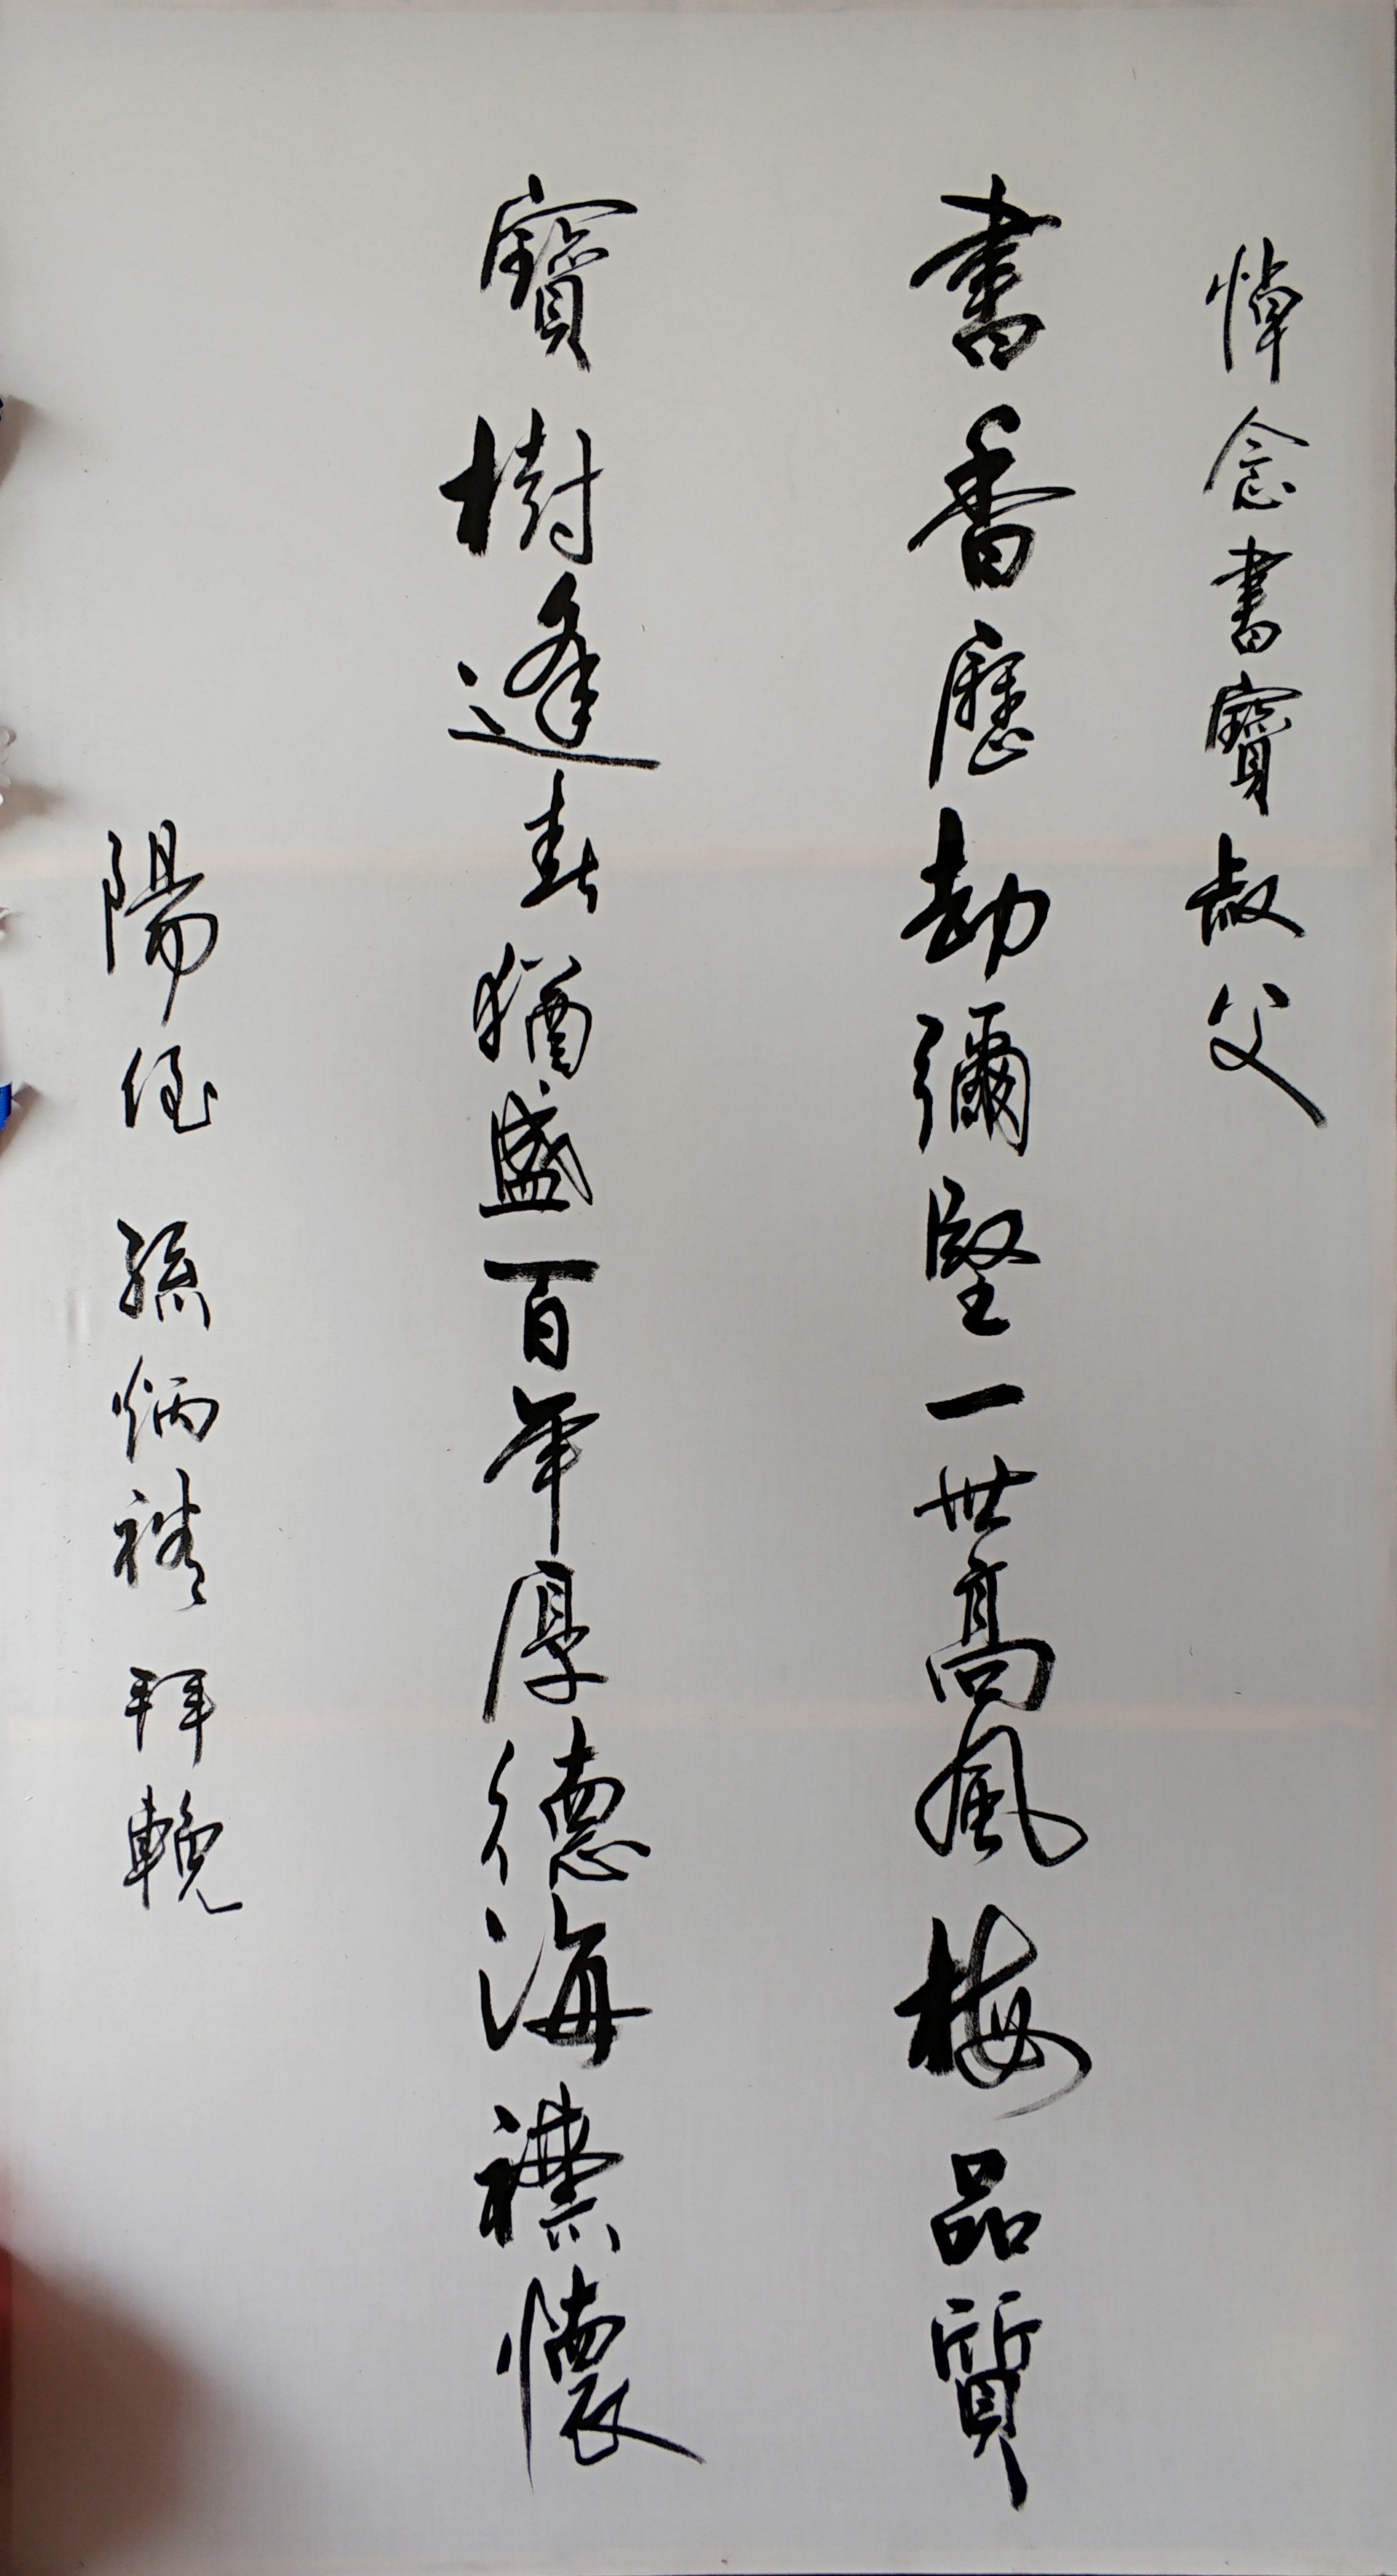 悼念書寶叔父
書香歷劫彌堅一世高風梅品質
寶樹逢春猶盛百年厚德海襟懷
陽侄孫炳禮拜輓